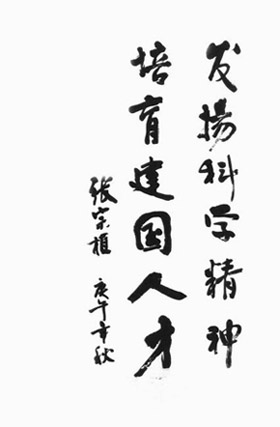 发揚科学精神
培育建国人才
张宗植
庚午年秋